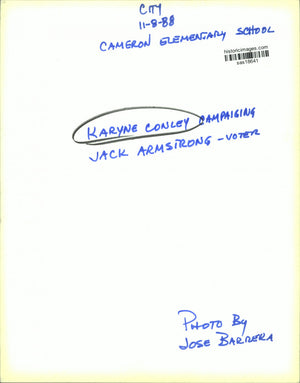 CITY
11-8-88
CAMERON ELEMENTARY SCHOOL
historicimages.com
sax18641
KARYNE CONLEY CAMPAIGING
JACK ARMSTRONG - VOTER
PHOTO BY
JOSE BARRERA